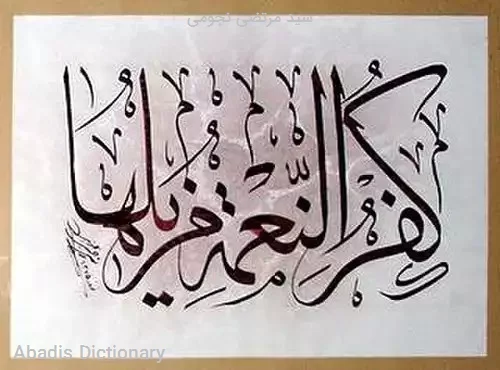 سید مرتضی نجومی
كفر النعمة مزيلها
Abadis Dictionary